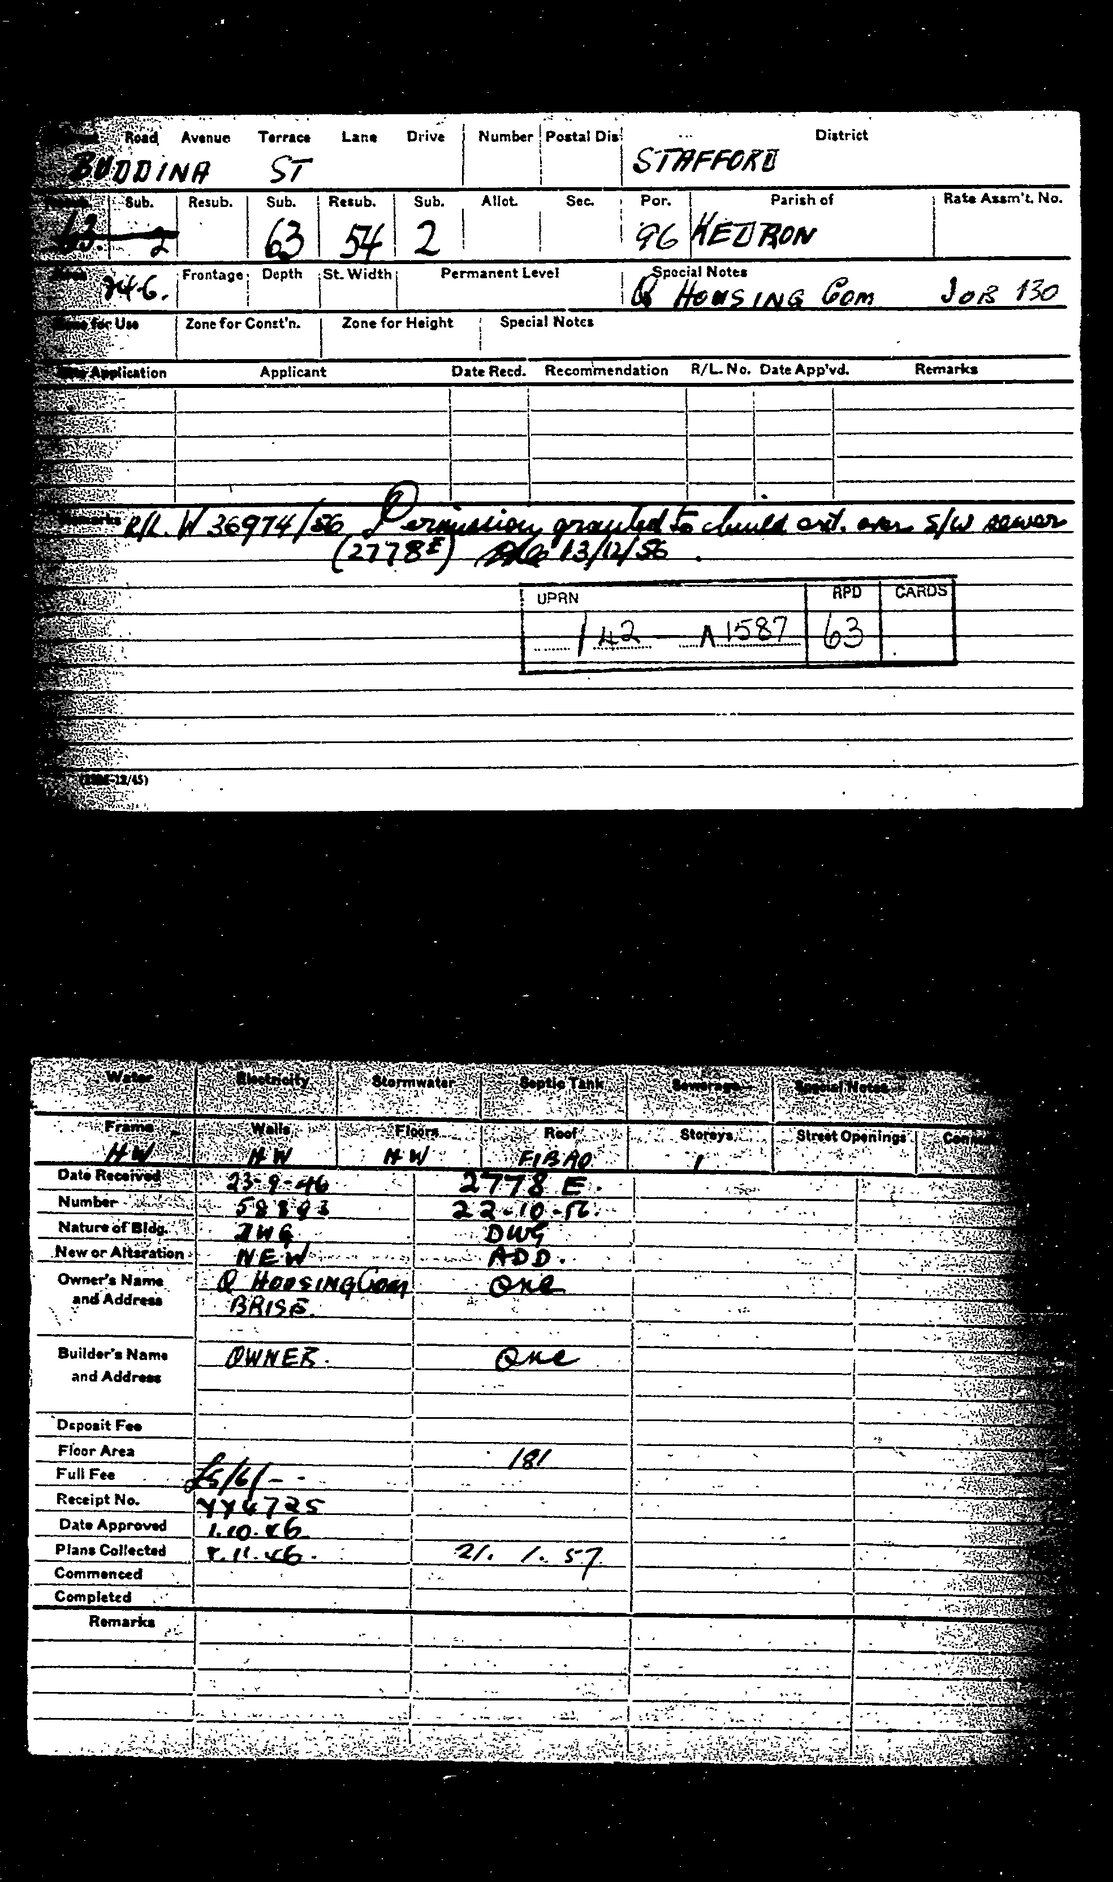 Road Avenue Terrace Lane Drive Number Postal Dis District
BUDDINA ST STAFFORD
Sub. Resub. Sub. Resub. Sub. Allot. Sec. Por. Parish of Rate Assm't. No.
63. 2 63 54 2 96 KEDRON
Area Frontage Depth St. Width Permanent Level Special Notes
24.6. Q HOUSING Com JOB 130
Zone for Use Zone for Const'n. Zone for Height Special Notes
Application Applicant Date Recd. Recommendation R/L. No. Date App'vd. Remarks
Remarks R/L. W 36974/56 Permission granted to build ext. over S/W sewer
(2778E) 13/12/56.
UPRN RPD CARDS
/ 42 1587 63
12/45)
Water Electricity Stormwater Septic Tank Sewerage Special Notes
Frame Walls Floors Roof Storeys Street Openings
H W H W H W FIBRO 1
Date Received 23-9-46 2778 E.
Number 58803 22-10-56.
Nature of Bldg. DWG DWG
New or Alteration NEW ADD.
Owner's Name Q HOUSING Com One
and Address BRISE.
Builder's Name OWNER. One
and Address
Deposit Fee
Floor Area 181
Full Fee £5/6/-
Receipt No. 725
Date Approved 1.10.46
Plans Collected 8.11.46. 21. 1. 57
Commenced
Completed
Remarks